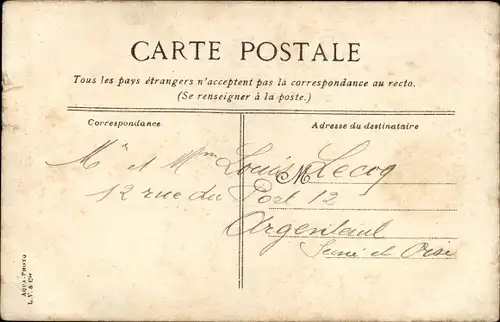 CARTE POSTALE
Tous les pays étrangers n'acceptent pas la correspondance au recto.
(Se renseigner à la poste.)
Correspondance
Adresse du destinataire
Mr et Mme Louis Lecoq
M
12 rue du Port 12
Argenteuil
Seine et Oise
AQUA-PHOTO
L. V. & Cie